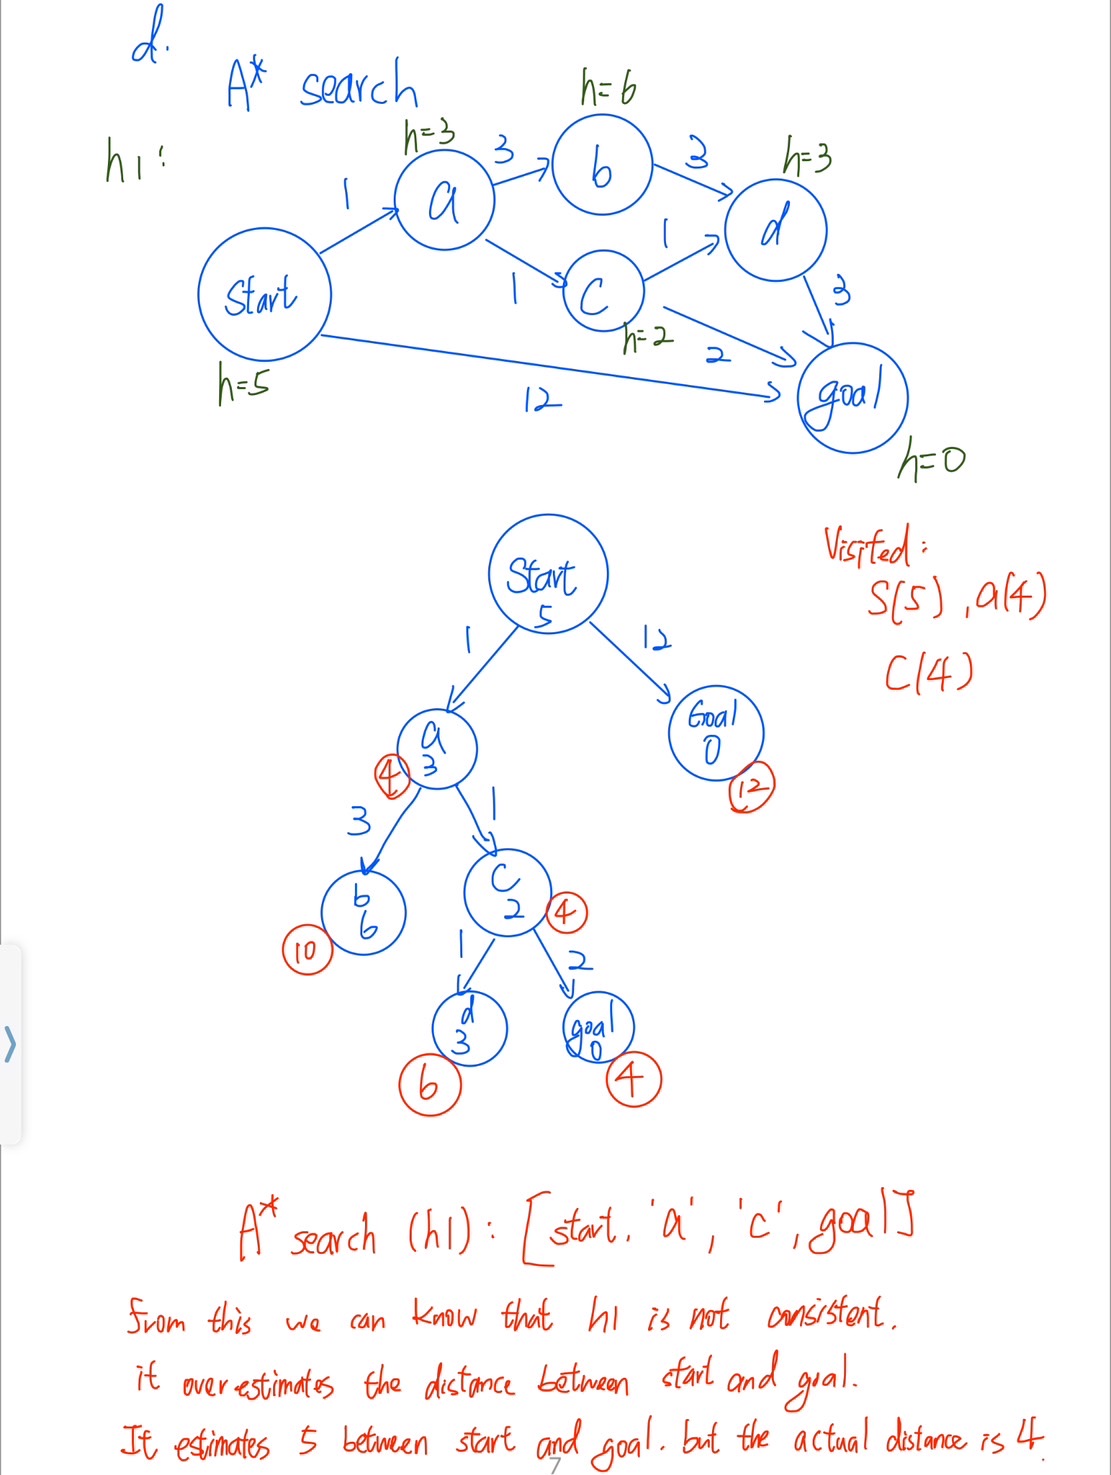 d.
A* search
h1:
h=6
h=3
3
b
3
h=3
1
a
d
1
Start
1
C
3
h=2
2
h=5
12
goal
h=0
Visited:
S(5), a(4)
C(4)
Start
5
1
12
a
3
4
Goal
0
12
3
1
b
6
10
C
2
4
1
2
d
3
6
goal
0
4
A* search (h1): [start, 'a', 'c', goal]
From this we can know that h1 is not consistent.
it overestimates the distance between start and goal.
It estimates 5 between start and goal. but the actual distance is 4.
7